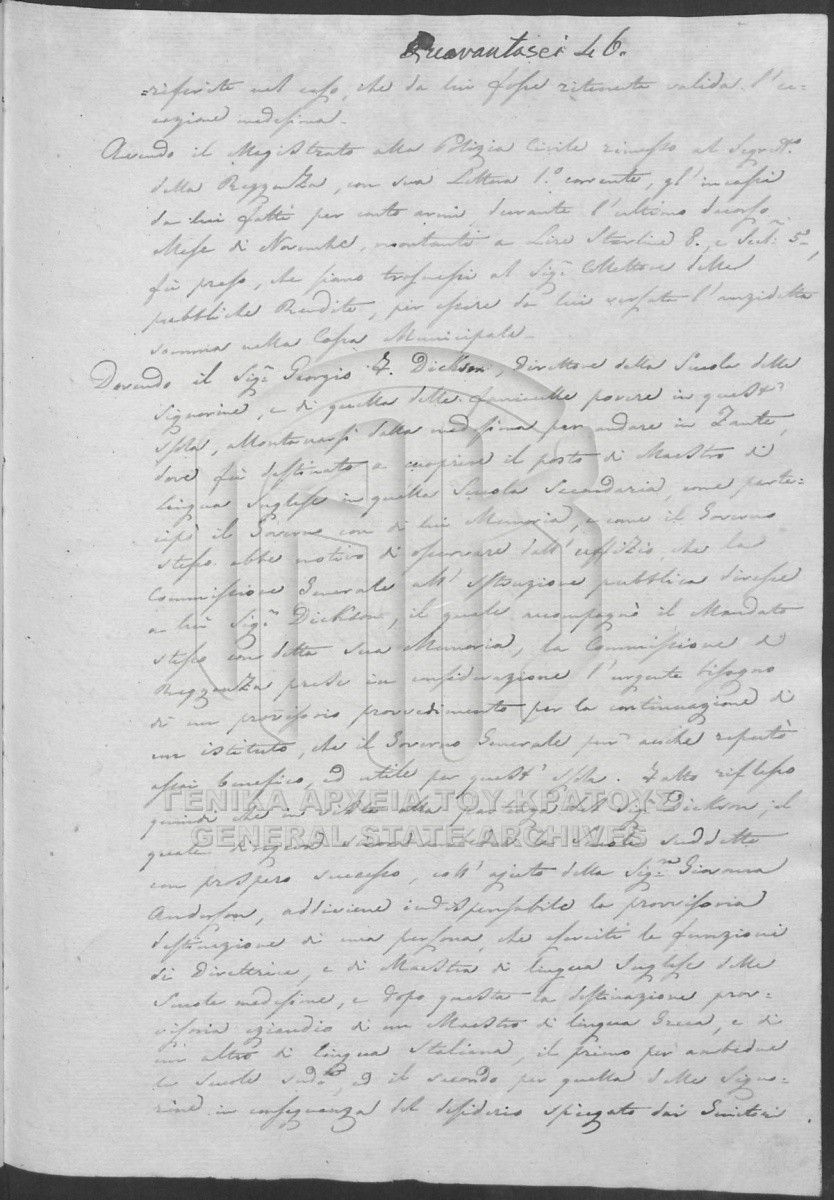 Quarantasei 46.
riferite nel caso, che da lui fosse ritenuta valida l'ec-
cezione medesima.
Avendo il Magistrato alla Polizia Civile rimesso al Segret.o
della Reggenza, con sua Lettera 1.o corrente, gl'incassi
da lui fatti per conto durante l'ultimo decorso
Mese di Novembre, montanti a Lire Sterline 8. e Scel: 5,
fù preso, che siano trasmessi al Sig.r Collettore delle
pubbliche Rendite, per essere da lui versata l'anzidetta
somma nella Cassa Municipale.
Dovendo il Sig.r Georgio F. Dickson, Direttore della Scuola delle
Signorine, e di quella delle fanciulle povere in quest'
Isola, allontanarsi dalla medesima per andare in Zante,
dove fù destinato a cuoprire il posto di Maestro di
lingua Inglese in quella Scuola Secondaria, come parte-
cipò il Governo con di lui Memoria, e come il Governo
stesso ebbe motivo di osservare dall'uffizio, che la
Commissione Generale all'Istruzione pubblica diresse
a lui Sig.r Dickson, il quale accompagnò il Mandato
stesso con detta sua Memoria, la Commissione di
Reggenza prese in considerazione l'urgente bisogno
di un provisorio provvedimento per la continuazione di
un istituto, che il Governo Generale pur anche reputò
assai benefico, ed utile per quest'Isola. Fatto riflesso
quindi che in vista alla partenza del Sig.r Dickson, il
quale le Scuole suddette
con prospero successo, coll'ajuto della Sig.ra Giovanna
Anderson, addiviene indispensabile la provvisoria
destinazione di una persona, che eserciti le funzioni
di Direttrice, e di Maestra di lingua Inglese delle
Scuole medesime, e dopo questa la destinazione prov-
visoria eziandio di un Maestro di lingua Greca, e di
un altro di lingua Italiana, il primo per ambedue
le Scuole sud.te, ed il secondo per quella delle Signo-
rine in conseguenza del desiderio spiegato dai Genitori
ΓΕΝΙΚΑ ΑΡΧΕΙΑ ΤΟΥ ΚΡΑΤΟΥΣ
GENERAL STATE ARCHIVES